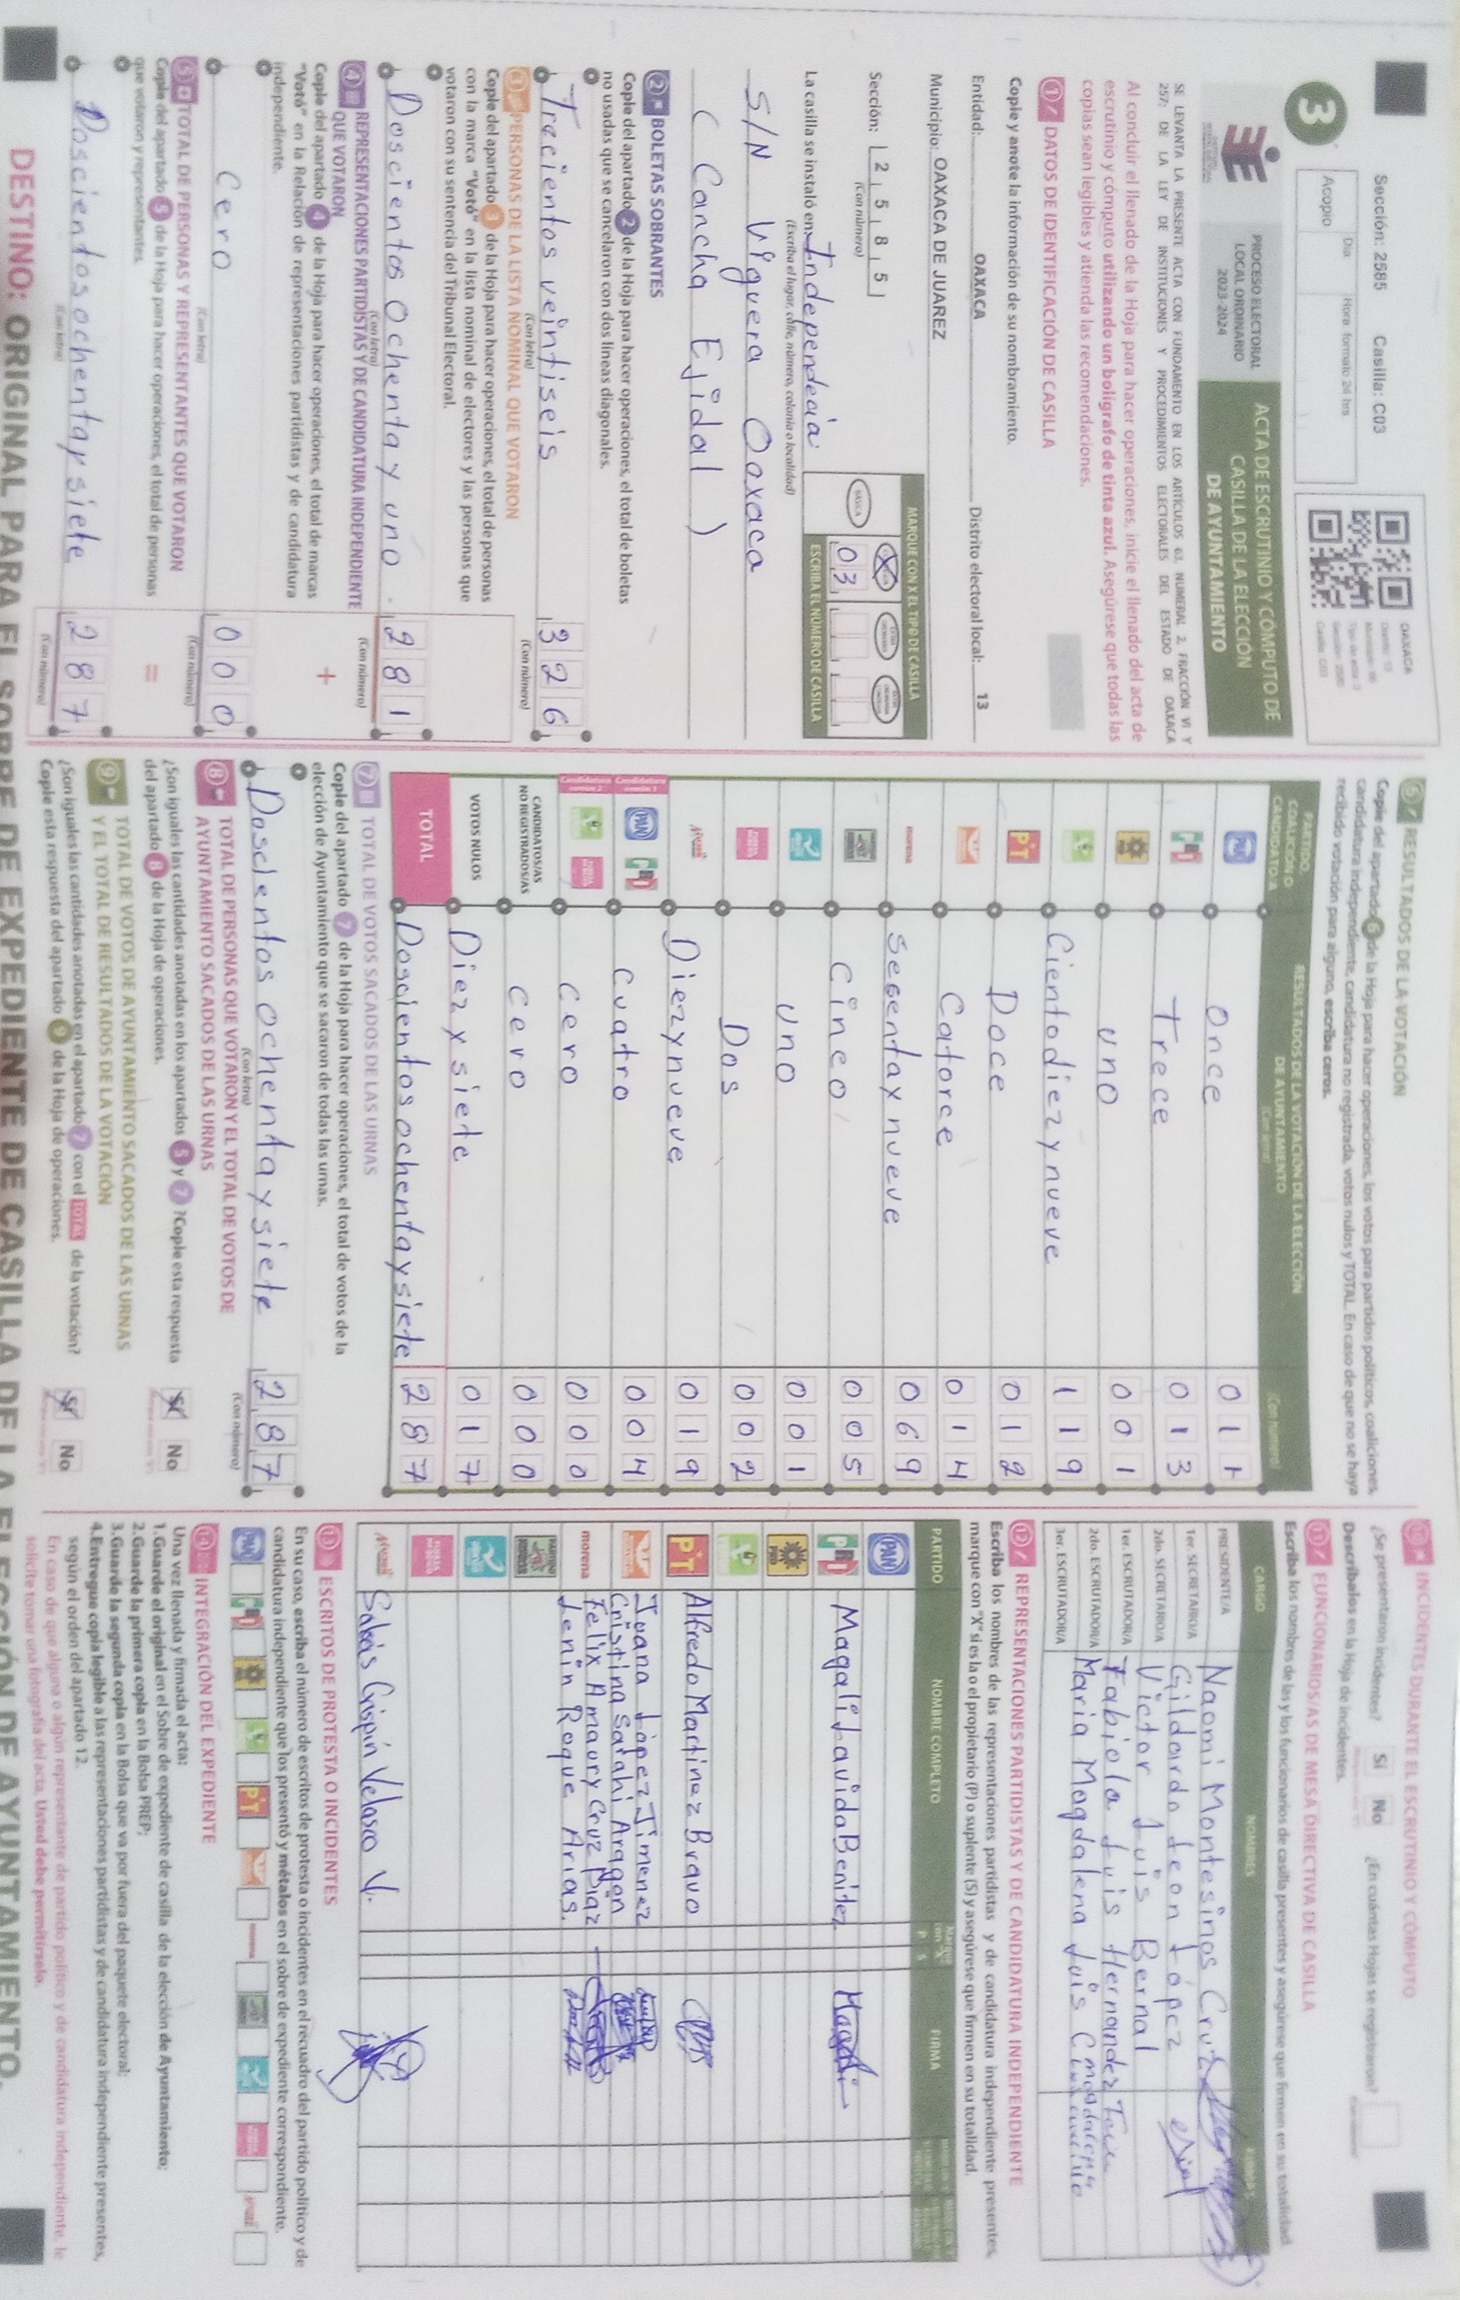 Sección: 2585 Casilla: C03
Acopio
Día
Hora formato 24 hrs
3
PROCESO ELECTORAL
LOCAL ORDINARIO
2023-2024
ACTA DE ESCRUTINIO Y CÓMPUTO DE
CASILLA DE LA ELECCIÓN
DE AYUNTAMIENTO
OAXACA
SE LEVANTA LA PRESENTE ACTA CON FUNDAMENTO EN LOS ARTÍCULOS 63, NUMERAL 2, FRACCIÓN VI Y
257; DE LA LEY DE INSTITUCIONES Y PROCEDIMIENTOS ELECTORALES DEL ESTADO DE OAXACA
Al concluir el llenado de la Hoja para hacer operaciones, inicie el llenado del acta de
escrutinio y cómputo utilizando un bolígrafo de tinta azul. Asegúrese que todas las
copias sean legibles y atienda las recomendaciones.
1 DATOS DE IDENTIFICACIÓN DE CASILLA
Copie y anote la información de su nombramiento.
Entidad: OAXACA Distrito electoral local: 13
Municipio: OAXACA DE JUAREZ
Sección: 2 5 8 5
(Con número)
MARQUE CON X EL TIPO DE CASILLA
BÁSICA
03
ESCRIBA EL NÚMERO DE CASILLA
La casilla se instaló en: Independecia
(Escriba el lugar, calle, número, colonia o localidad)
S/N Viguera Oaxaca
( Cancha Ejidal )
2 BOLETAS SOBRANTES
Copie del apartado 2 de la Hoja para hacer operaciones, el total de boletas
no usadas que se cancelaron con dos líneas diagonales.
Trecientos veintiseis 326
(Con letra) (Con número)
3 PERSONAS DE LA LISTA NOMINAL QUE VOTARON
Copie del apartado 3 de la Hoja para hacer operaciones, el total de personas
con la marca "Votó" en la lista nominal de electores y las personas que
votaron con su sentencia del Tribunal Electoral.
Doscientos Ochenta y uno. 281
(Con letra) (Con número)
4 REPRESENTACIONES PARTIDISTAS Y DE CANDIDATURA INDEPENDIENTE
QUE VOTARON
Copie del apartado 4 de la Hoja para hacer operaciones, el total de marcas
"Votó" en la Relación de representaciones partidistas y de candidatura
independiente.
+
Cero 000
(Con letra) (Con número)
5 TOTAL DE PERSONAS Y REPRESENTANTES QUE VOTARON
Copie del apartado 5 de la Hoja para hacer operaciones, el total de personas
que votaron y representantes.
=
Doscientos ochenta y siete 287
(Con letra) (Con número)
6 RESULTADOS DE LA VOTACIÓN
Copie del apartado 6 de la Hoja para hacer operaciones, los votos para partidos políticos, coaliciones,
candidatura independiente, candidatura no registrada, votos nulos y TOTAL. En caso de que no se haya
recibido votación para alguno, escriba ceros.
PARTIDO,
COALICIÓN O
CANDIDATO/A
RESULTADOS DE LA VOTACIÓN DE LA ELECCIÓN
DE AYUNTAMIENTO
(Con letra) (Con número)
PAN Once 011
PRI Trece 013
uno 001
Ciento diez y nueve 119
PT Doce 012
Catorce 014
morena Sesenta y nueve 069
cinco 005
uno 001
Dos 002
Diez y nueve 019
PAN PRI Cuatro 004
cero 000
CANDIDATOS/AS
NO REGISTRADOS/AS cero 000
VOTOS NULOS Diez y siete 017
TOTAL Doscientos ochenta y siete 287
7 TOTAL DE VOTOS SACADOS DE LAS URNAS
Copie del apartado 7 de la Hoja para hacer operaciones, el total de votos de la
elección de Ayuntamiento que se sacaron de todas las urnas.
Doscientos ochenta y siete 287
(Con letra) (Con número)
8 TOTAL DE PERSONAS QUE VOTARON Y EL TOTAL DE VOTOS DE
AYUNTAMIENTO SACADOS DE LAS URNAS
¿Son iguales las cantidades anotadas en los apartados 5 y 7? Copie esta respuesta
del apartado 8 de la Hoja de operaciones.
Sí No
9 TOTAL DE VOTOS DE AYUNTAMIENTO SACADOS DE LAS URNAS
Y EL TOTAL DE RESULTADOS DE LA VOTACIÓN
¿Son iguales las cantidades anotadas en el apartado 7 con el TOTAL de la votación?
Copie esta respuesta del apartado 9 de la Hoja de operaciones.
Sí No
10 INCIDENTES DURANTE EL ESCRUTINIO Y CÓMPUTO
¿Se presentaron incidentes? Sí No ¿En cuántas Hojas se registraron?
Descríbalos en la Hoja de incidentes.
11 FUNCIONARIOS/AS DE MESA DIRECTIVA DE CASILLA
Escriba los nombres de las y los funcionarios de casilla presentes y asegúrese que firmen en su totalidad
CARGO NOMBRES FIRMAS
PRESIDENTE/A Naomi Montesinos Cruz
1er. SECRETARIO/A Gildardo Leon López
2do. SECRETARIO/A Victor Luis Bernal
1er. ESCRUTADOR/A Fabiola Luis Hernandez
2do. ESCRUTADOR/A Maria Magdalena Luis C
3er. ESCRUTADOR/A
12 REPRESENTACIONES PARTIDISTAS Y DE CANDIDATURA INDEPENDIENTE
Escriba los nombres de las representaciones partidistas y de candidatura independiente presentes,
marque con "X" si es la o el propietario (P) o suplente (S) y asegúrese que firmen en su totalidad.
PARTIDO NOMBRE COMPLETO P S FIRMA
PAN
PRI Magali Lavida Benitez
PRD
PT Alfredo Martinez Bravo
Juana López Jimenez
Cristina Sarahi Aragón
morena Felix Amaury Cruz Diaz
Lenin Roque Arias.
Sabás Crispín Velasco V.
13 ESCRITOS DE PROTESTA O INCIDENTES
En su caso, escriba el número de escritos de protesta o incidentes en el recuadro del partido político y de
candidatura independiente que los presentó y métalos en el sobre de expediente correspondiente.
PAN PRI PT
14 INTEGRACIÓN DEL EXPEDIENTE
Una vez llenada y firmada el acta:
1. Guarde el original en el Sobre de expediente de casilla de la elección de Ayuntamiento;
2. Guarde la primera copia en la Bolsa PREP;
3. Guarde la segunda copia en la Bolsa que va por fuera del paquete electoral;
4. Entregue copia legible a las representaciones partidistas y de candidatura independiente presentes,
según el orden del apartado 12.
En caso de que alguna o algún representante de partido político y de candidatura independiente, le
solicite tomar una fotografía del acta, Usted debe permitírselo.
DESTINO: ORIGINAL PARA EL SOBRE DE EXPEDIENTE DE CASILLA DE LA ELECCIÓN DE AYUNTAMIENTO.